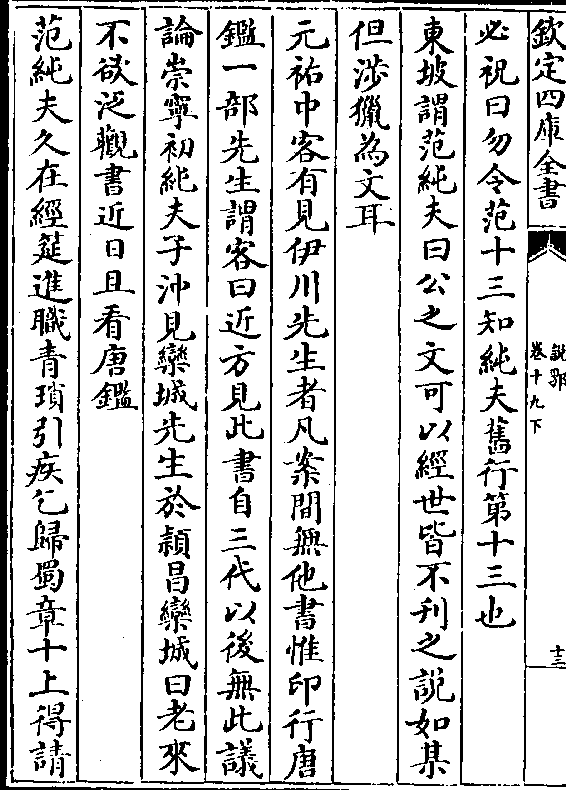 欽定四庫全書
說郛
卷十九下
十三
必祝曰勿令范十三知純夫舊行第十三也
東坡謂范純夫曰公之文可以經世皆不刋之說如某
但涉獵為文耳
元祐中客有見伊川先生者凡案間無他書惟印行唐
鑑一部先生謂客曰近方見此書自三代以後無此議
論崇寧初純夫子沖見欒城先生於頴昌欒城曰老來
不欲泛觀書近日且看唐鑑
范純夫久在經筵進職青瑣引疾乞歸蜀章十上得請